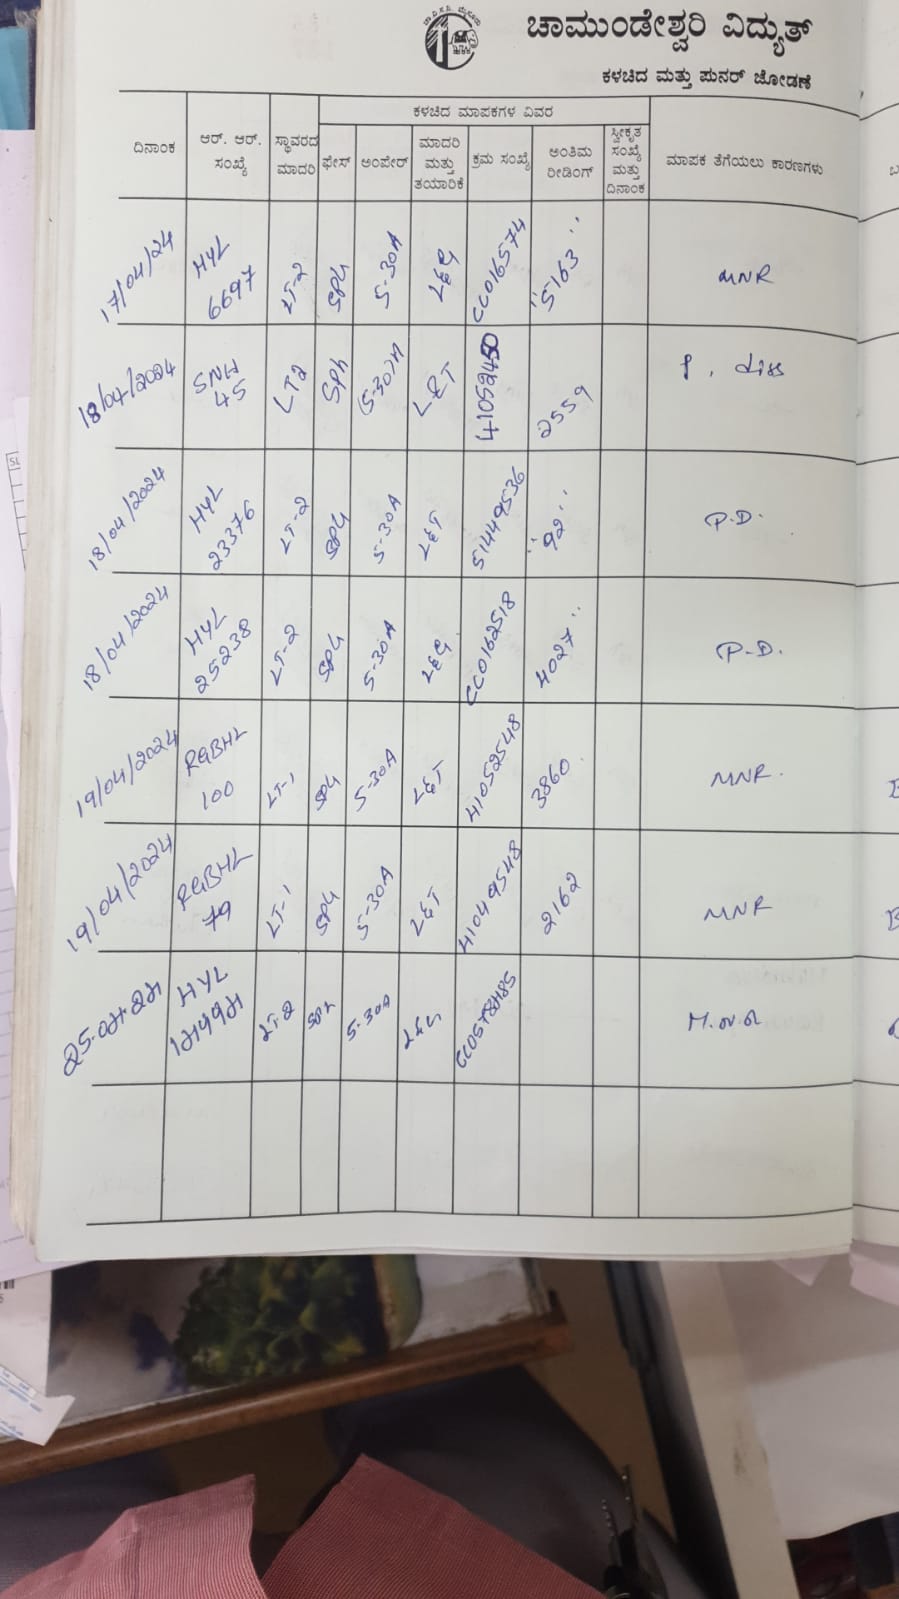 ಚಾಮುಂಡೇಶ್ವರಿ ವಿದ್ಯುತ್
ಕಳಚಿದ ಮತ್ತು ಪುನರ್ ಜೋಡಣೆ
ಕಳಚಿದ ಮಾಪಕಗಳ ವಿವರ
ದಿನಾಂಕ ಆರ್. ಆರ್. ಸಂಖ್ಯೆ ಸ್ಥಾವರದ ಮಾದರಿ ಫೇಸ್ ಅಂಪೇರ್ ಮಾದರಿ ಮತ್ತು ತಯಾರಿಕೆ ಕ್ರಮ ಸಂಖ್ಯೆ ಅಂತಿಮ ರೀಡಿಂಗ್ ಸ್ವೀಕೃತ ಸಂಖ್ಯೆ ಮತ್ತು ದಿನಾಂಕ ಮಾಪಕ ತೆಗೆಯಲು ಕಾರಣಗಳು
17/04/24 HYL 6697 LT-2 SPH 5-30A L&G CC016574 5163 MNR
18/04/2024 SNH 45 LT2 SPH (5-30)A L&T 2559 P. diss
18/04/2024 HYL 23376 LT-2 SPH 5-30A L&T 51449536 92 P.D.
18/04/2024 HYL 25238 LT-2 SPH 5-30A L&G CC0162518 4027 P.D.
19/04/2024 RGBHL 100 LT-1 SPH 5-30A L&T 41052548 3860 MNR.
19/04/2024 RGBHL 79 LT-1 SPH 5-30A L&T 41049548 2162 MNR
25.04.24 HYL LT-2 SPH 5-30A L&G M.N.R